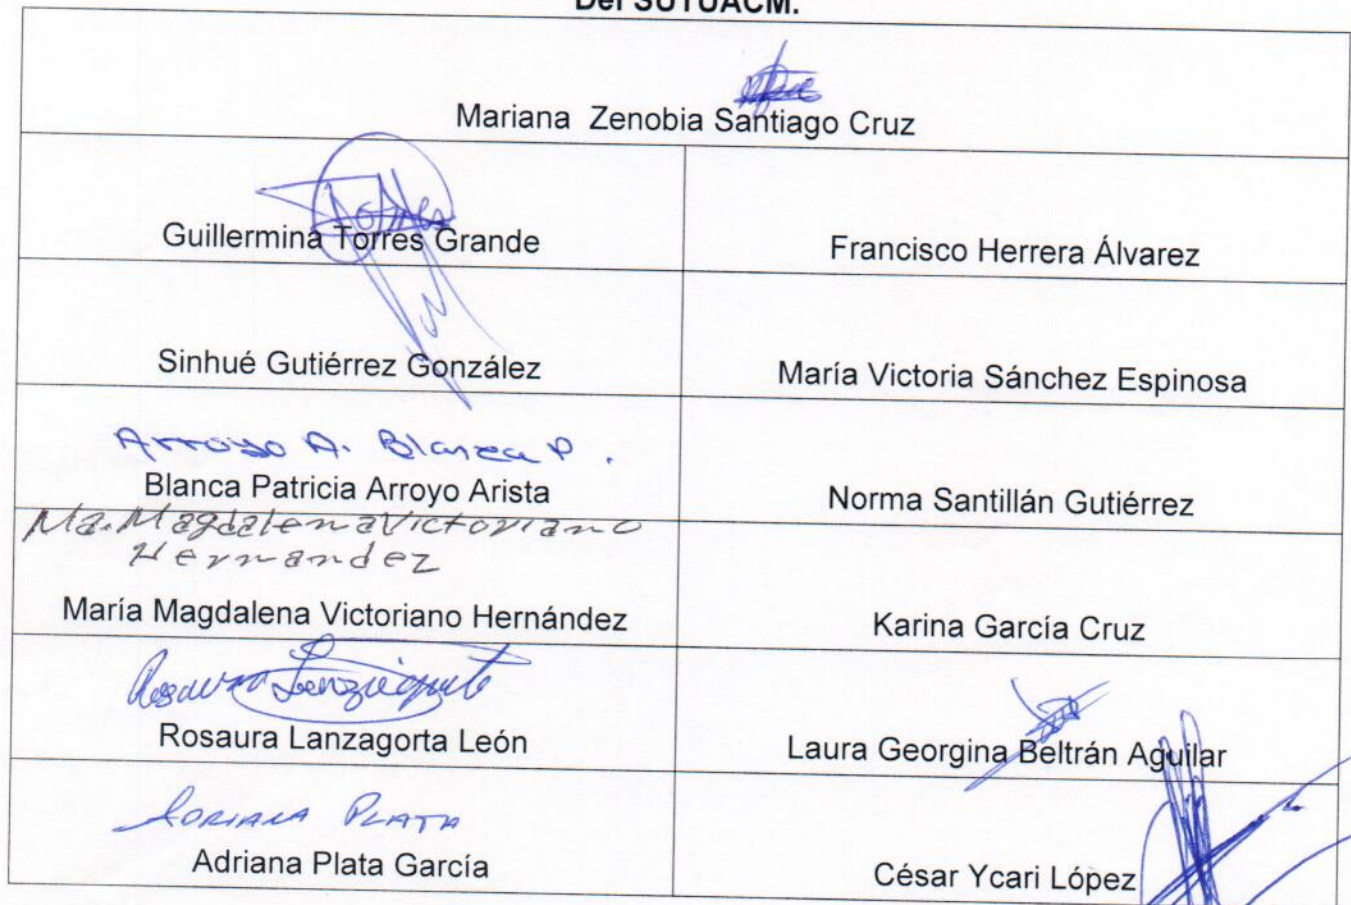 Del SUTUACM.
Mariana Zenobia Santiago Cruz
Guillermina Torres Grande
Francisco Herrera Álvarez
Sinhué Gutiérrez González
María Victoria Sánchez Espinosa
Arroyo A. Blanca P.
Blanca Patricia Arroyo Arista
Norma Santillán Gutiérrez
Ma. Magdalena Victoriano
Hernandez
María Magdalena Victoriano Hernández
Karina García Cruz
Rosaura Lanzagorta
Rosaura Lanzagorta León
Laura Georgina Beltrán Aguilar
ADRIANA PLATA
Adriana Plata García
César Ycari López